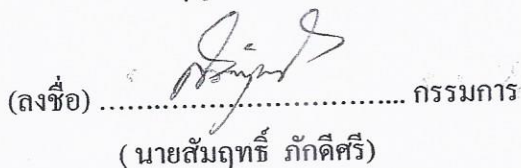 (ลงชื่อ) ........................................ กรรมการ
(นายสัมฤทธิ์ ภักดีศรี)